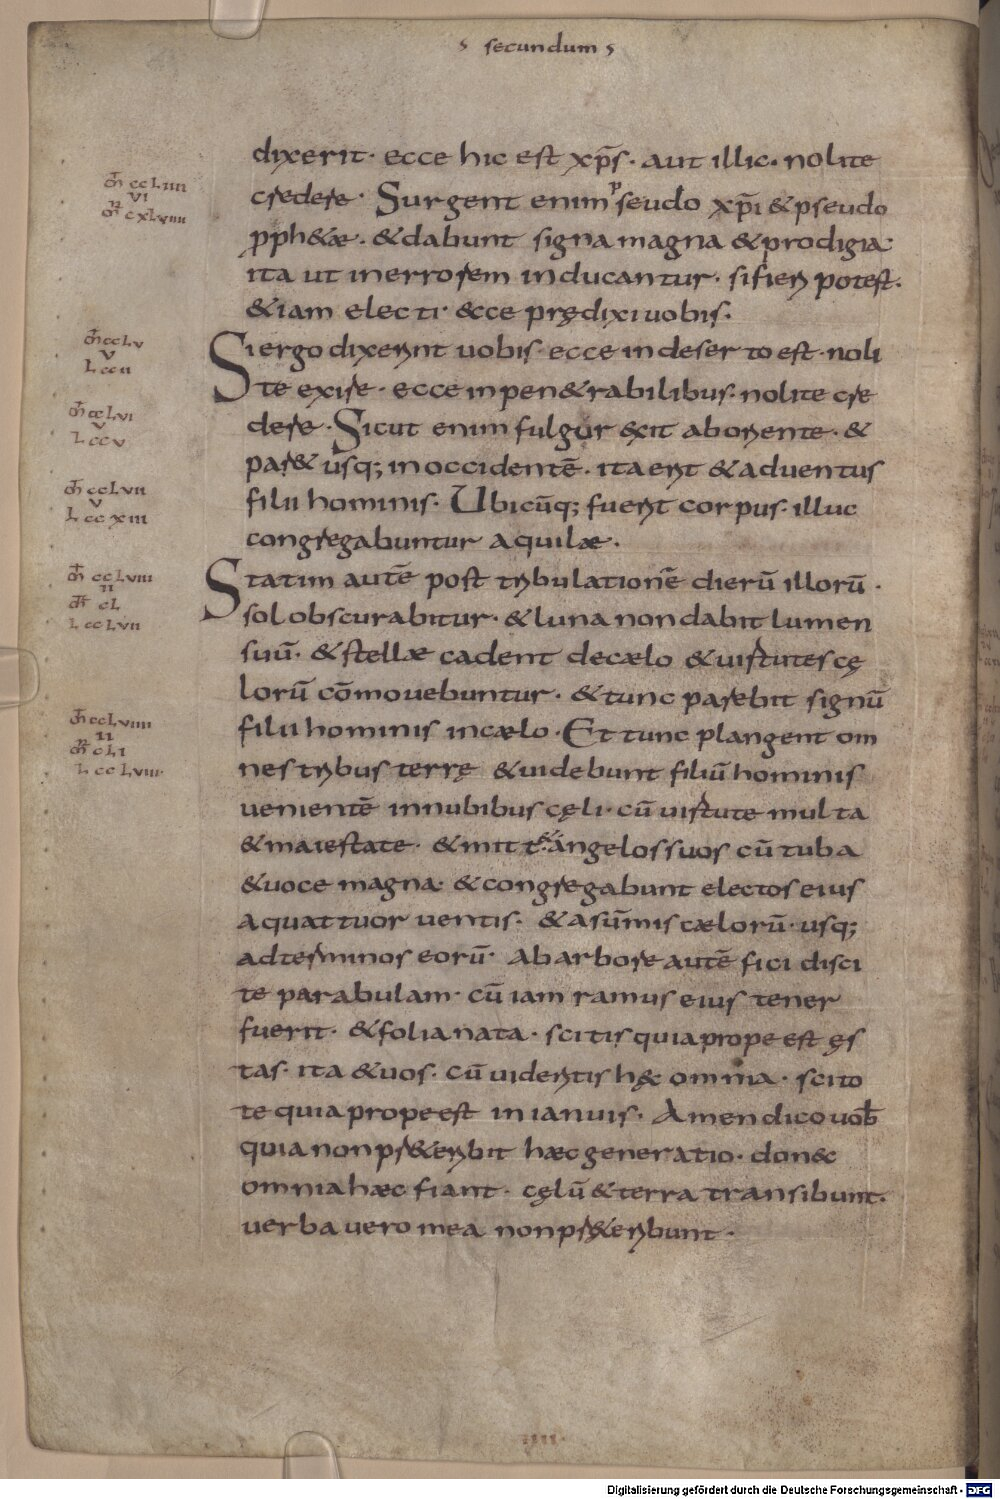 secundum
dixerit· ecce hic est xp̄s· aut illic· nolite
credere· Surgent enim pseudo xp̄i & pseudo
pph&æ· & dabunt signa magna & prodigia·
ita ut in errorem inducantur· si fieri potest·
& iam electi· ecce prędixi uobis·
Si ergo dixerint uobis· ecce in deserto est· noli
te exire· ecce in pen&rabilibus· nolite cre
dere· Sicut enim fulgur exit ab oriente· &
par& usq; in occidentē· ita erit & aduentus
filii hominis· Ubicūq; fuerit corpus· illuc
congregabuntur aquilæ·
Statim autē post tribulationē dierū illorū·
sol obscurabitur· & luna non dabit lumen
suū· & stellæ cadent de cælo & uirtutes cę
lorū cōmouebuntur· & tunc parebit signū
filii hominis in cælo· Et tunc plangent om
nes tribus terrę & uidebunt filiū hominis
uenientē in nubibus cęli· cū uirtute multa
& maiestate· & mitt& angelos suos cū tuba
& uoce magna· & congregabunt electos eius
a quattuor uentis· & a sūmis cælorū· usq;
ad terminos eorū· Ab arbore autē fici disci
te parabulam· cū iam ramus eius tener
fuerit· & folia nata· scitis quia prope est ęs
tas· ita & uos· cū uideritis hęc omnia· scito
te quia prope est in ianuis· Amen dico uob̄
quia non pr&eribit hæc generatio· donec
omnia hæc fiant· cęlū & terra transibunt·
uerba uero mea non pr&eribunt·
m̄ ccLiiii
vi
m̄r cxLviiii
m̄ ccLv
v
L ccii
m̄ ccLvi
v
L ccv
m̄ ccLvii
v
L ccxiii
m̄ ccLviii
ii
m̄r cL
L ccLvii
m̄ ccLviiii
ii
m̄r cLi
L ccLviii
Digitalisierung gefördert durch die Deutsche Forschungsgemeinschaft - DFG